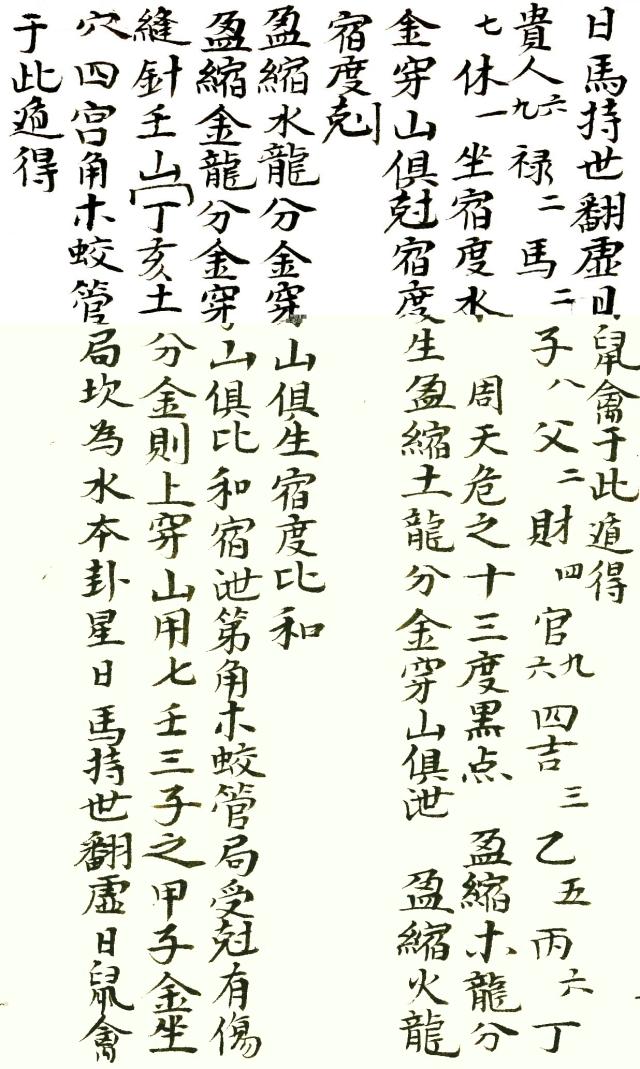 日馬持世翻虛日鼠禽于此遁得
貴人六九 禄二 馬二 子八 父二 財四 官九六 四吉 三乙 五丙 六丁
七休一 坐宿度水 周天危之十三度黑点 盈縮木龍分
金穿山俱尅宿度生 盈縮土龍分金穿山俱泄 盈縮火龍
宿度剋
盈縮水龍分金穿山俱生宿度比和
盈縮金龍分金穿山俱比和宿泄第角木蛟管局受尅有傷
縫針壬山丁亥土分金則上穿山用七壬三子之甲子金坐
穴四宮角木蛟管局坎為水本卦星日馬持世翻虛日鼠禽
于此遁得